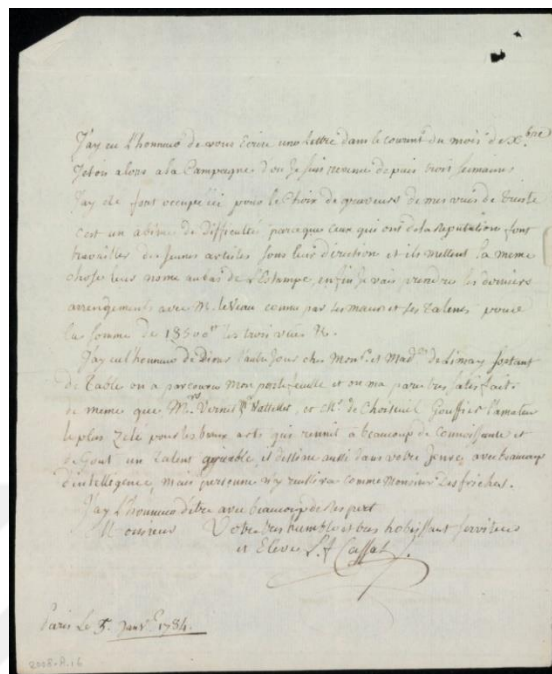 J'ay eu l'honneur de vous Ecrire une lettre dans le courant du mois de Xbre
J'etois alors a la Campagne d'ou Je suis revenu depuis trois semaines
J'ay été fort occupé ici pour le Choix de graveurs de mes vues de trieste
c'est un abime de difficulté parceque ceux qui ont de la Reputation font
travailler des Jeunes artistes sous leur direction et ils mettent la meme
chose leur nome au bas de L'Estampe, enfin Je vais prendre les derniers
arrengements avec M. leVeau connu par ses mœurs et ses talens pour
la somme de 13500 les trois vues
J'ay eu l'honneur de Diner l'autre Jour chez Monsr. et Made. de Limay sortant
de Table on a parcouru Mon porte feuille et on m'a paru tres satisfaits
de meme que Mrs Vernet Vattelet, et Mr. de Choiseuil Gouffier l'amateur
le plus Zelé pour les beaux arts qui reunit a beaucoup de Connoissance et
de Gout un talent agreable, il dessine aussi dans votre Genre avec beaucoup
d'intelligence, mais personne n'y reussira comme Monsieur Desfriches.
J'ay L'honneur d'être avec beaucoup de Respect
Monsieur Votre tres humble et tres hobeissant serviteur
et Eleve L. f Cassas
Paris Le 5. Janv. 1784.
2008.R.16